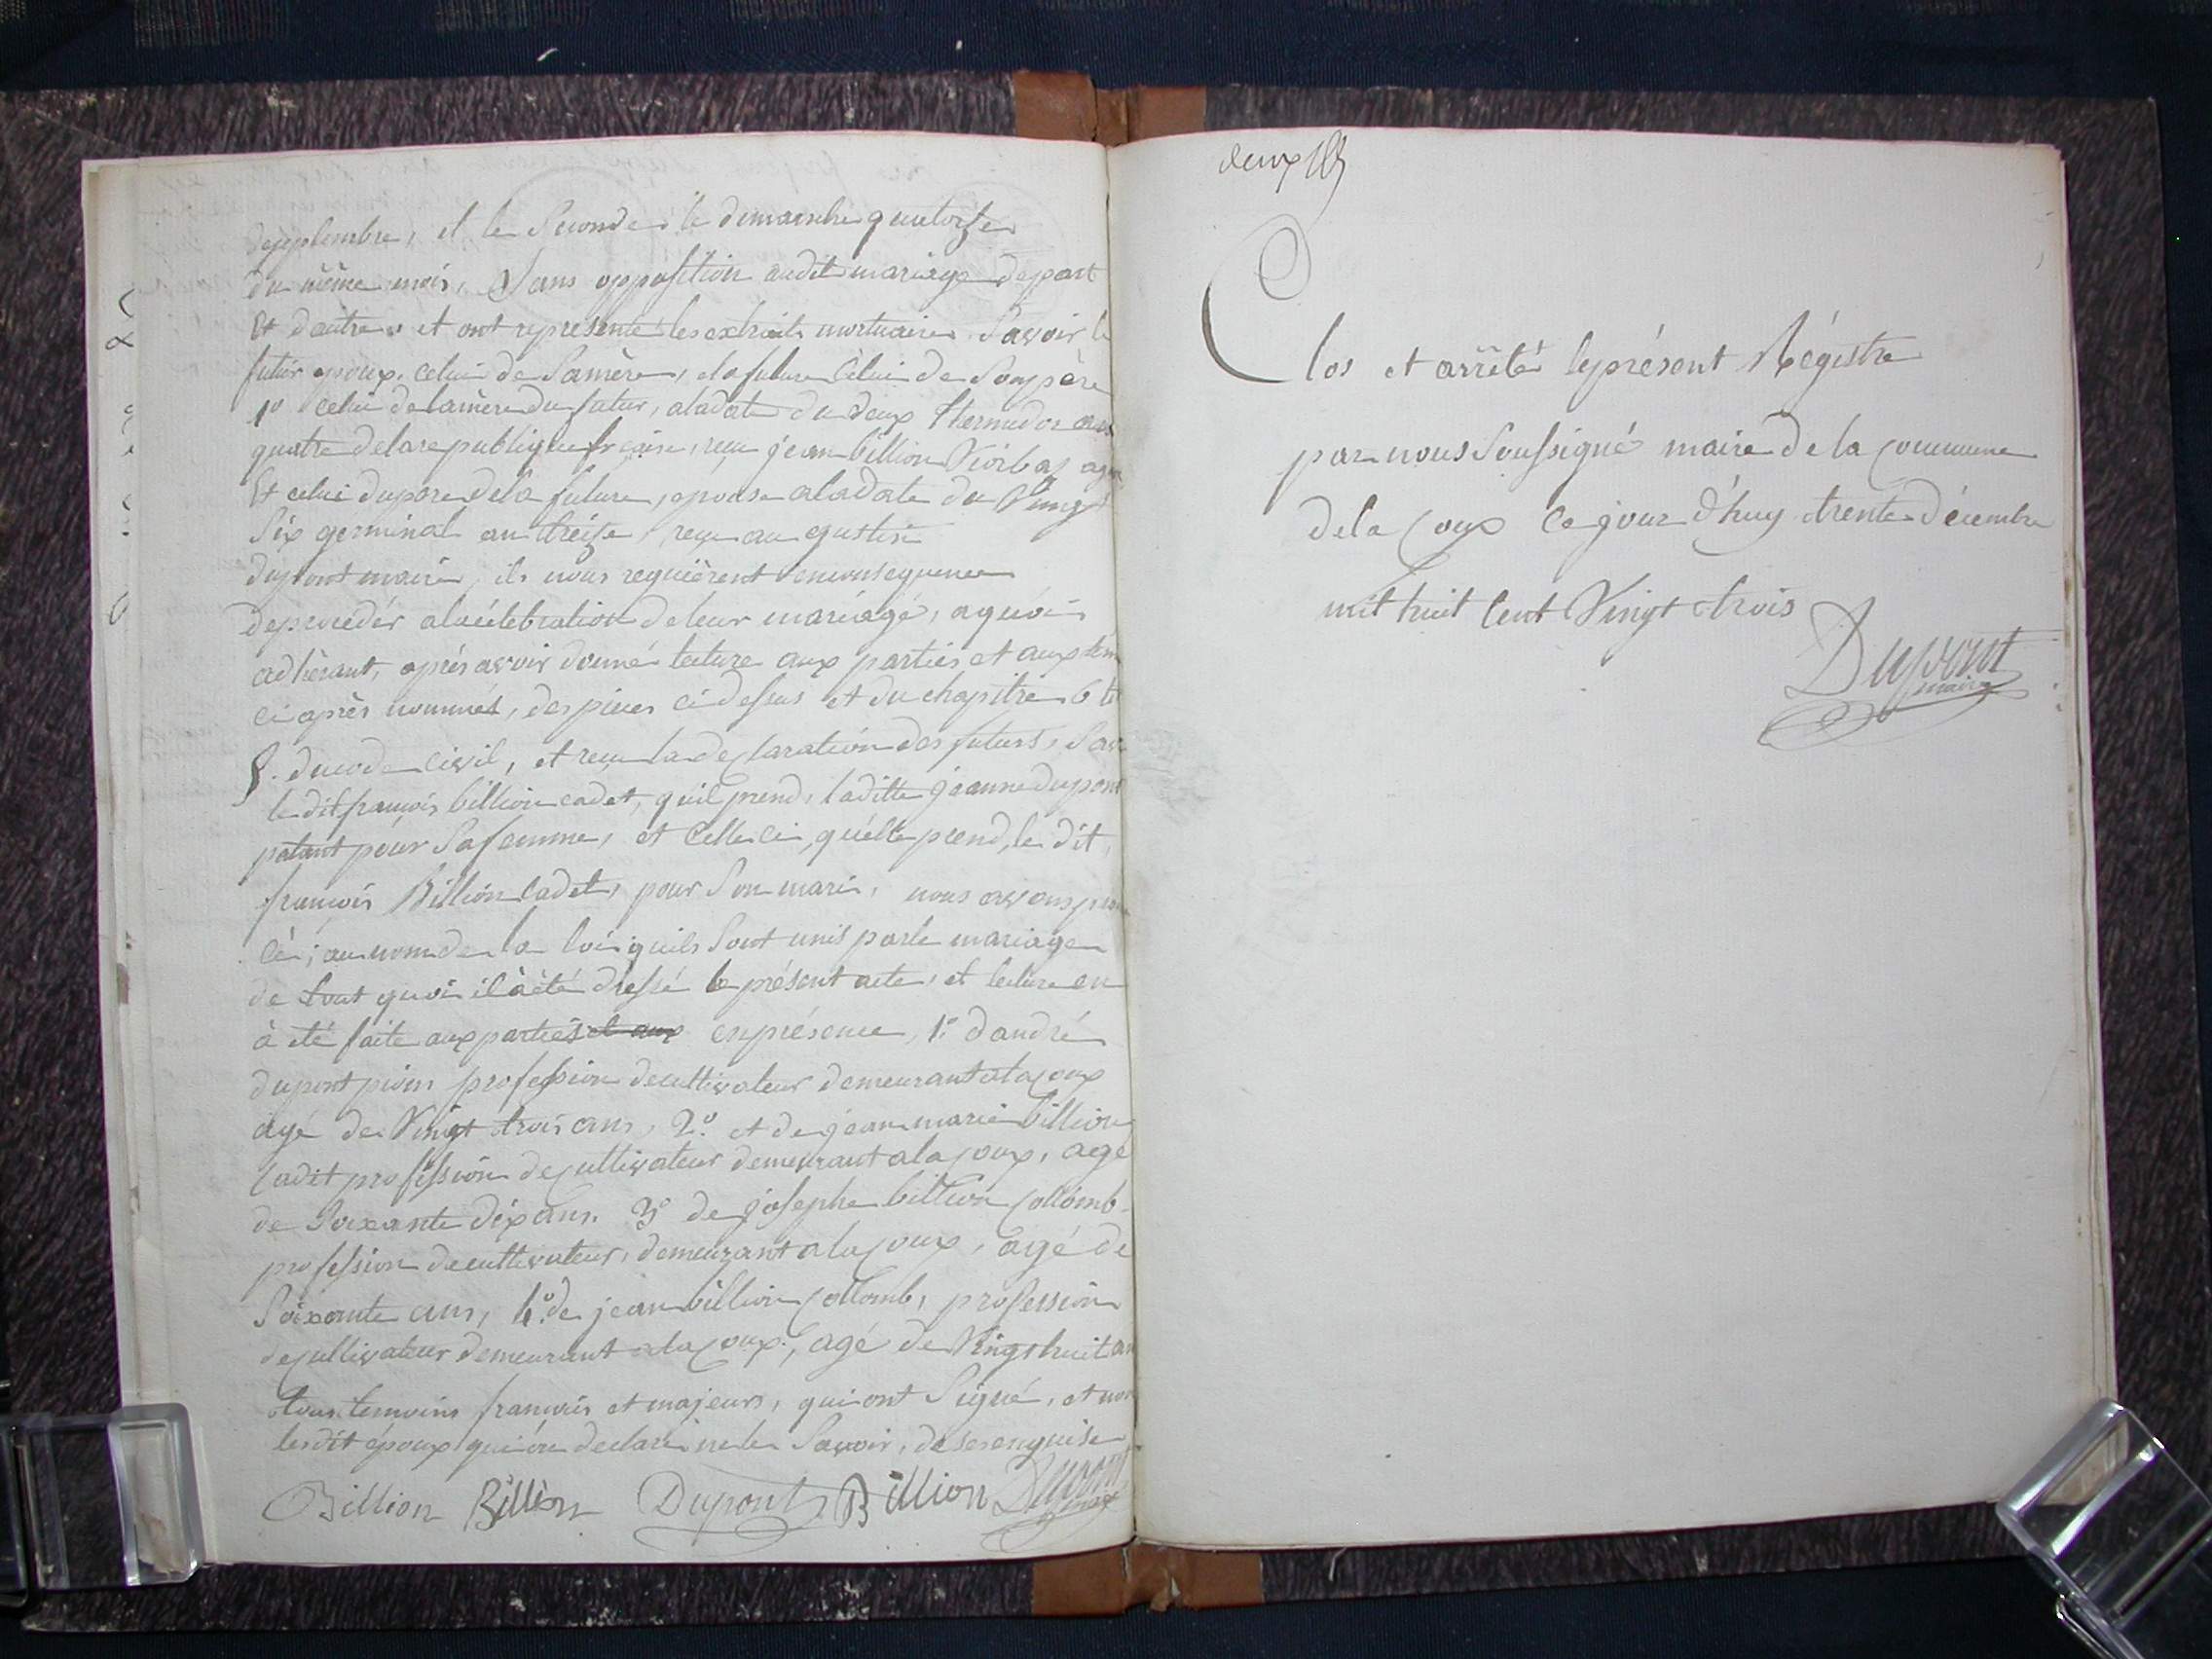 de septembre, et le Seconde le dimanche quatorze
du même mois, Sans opposition audit mariage depart
Et dautre et ont representé les extraits mortuaires Savoir le
futur epoux, celui de Samère, et la future Celui de Son père
1º celui de lamère du futur, aladate du deux thermidor
quatre de la republique francaise, reçu jean billion
Et celui du pere de la future, epouse aladate du Vingt
Six germinal an treize, reçu au gustin
dupont maire, ils nous requièrent en consequence
deprocedér alacélébration de leur mariagé, aquoi
adhérant, aprés avoir donné lecture aux parties et aux tem
ci après nommés, des pieces ci dessus et du chapitre 6
du code civil, et reçu la declaration des futurs, Sav
le dit françois billion cadet, quil prend, laditte jeanne dupont
patant pour Safemme, et Celle ci, quélle prend, le dit,
françois Billion Cadet, pour Son mari, nous avons
cé; au nom de la loi quils Sont unis parle mariage
de tout quoi il à été dressé le présent acte, et lecture en
à eté faite aux parties et aux en présence, 1º dandré
dupont profession decultivateur demeurant alajoux
agé de Vingt trois ans, 2º. et de jean marie billion
Cadit profession decultivateur demeurant ala joux, agé
de Soixante dix ans. 3º de josephe billion Collomb
profession decultivateur, demeurant alajoux, agé de
Soixante ans, 4º. de jean billion Collomb, profession
decultivateur demeurant alajoux, agé de Vingt huit an
tous temoins francois et majeurs, qui ont Signé, et non
lesdit époux qui on declaré ne le Savoir, de ce enquise
Billion Billion Dupont Billion Dupont
maire
deux
Clos et arrêté leprésent Régistre
par nous Soussigné maire de la Commune
dela joux Ce jour d'huy trente décembre
mil huit Cent Vingt trois
Dupont
maire